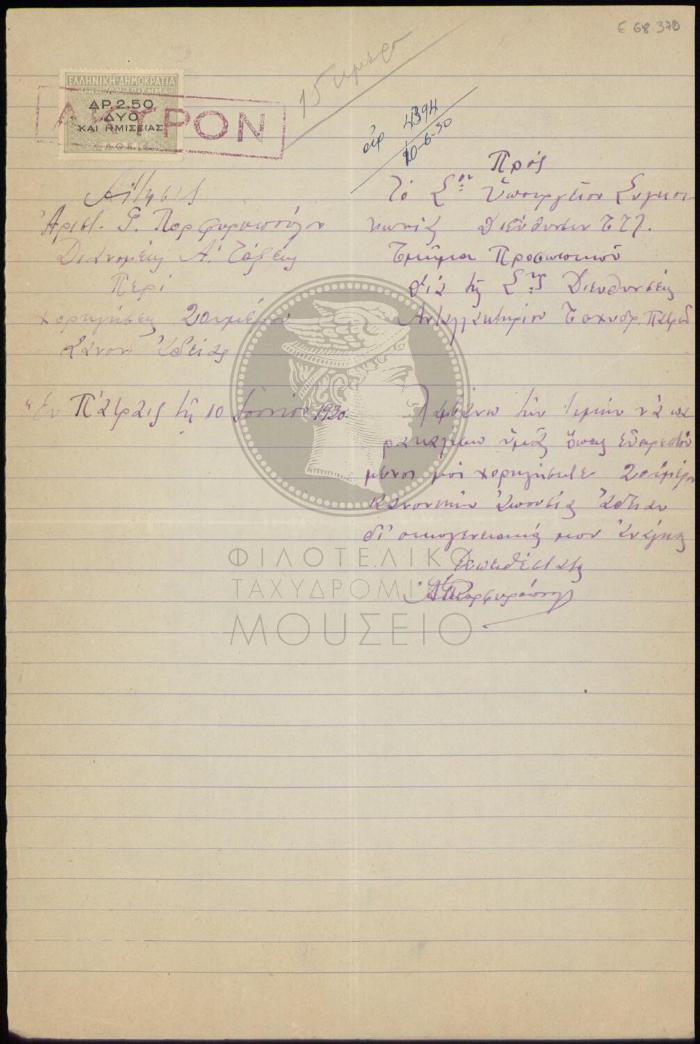 Ε 68 370
15ημερο
ΕΛΛΗΝΙΚΗ ΔΗΜΟΚΡΑΤΙΑ
ΔΡ. 2.50
ΔΥΟ
ΚΑΙ ΗΜΙΣΕΙΑΣ
ΑΚΥΡΟΝ
4394
10-6-30
Αἴτησις
Ἀριστ. Γ. Πορφυροπούλου
Διανομέως Α΄ Τάξεως
Περί
χορηγήσεως 20ημέρου
κανον. ἀδείας
Ἐν Πάτραις τῇ 10 Ἰουνίου 1930
Πρός
Τό Σον Ὑπουργεῖον Συγκοι
νωνίας Διεύθυνσιν Τ.Τ.Τ.
Τμῆμα Προσωπικοῦ
διά τῆς Σης Διευθύνσεως
Ἀνταλλακτηρίου Ταχυδρ. Πατρῶν
Λαμβάνω τήν τιμήν νά πα
ρακαλέσω ὑμᾶς ὅπως εὐαρεστού
μενοι μοί χορηγήσητε 20ήμερον
κανονικήν ἀπουσίας ἄδειαν
δι' οἰκογενειακάς μου ἀνάγκας
Εὐπειθέστατος
ΑΠορφυρόπουλος
ΦΙΛΟΤΕΛΙΚΟ
ΤΑΧΥΔΡΟΜΙΚΟ
ΜΟΥΣΕΙΟ